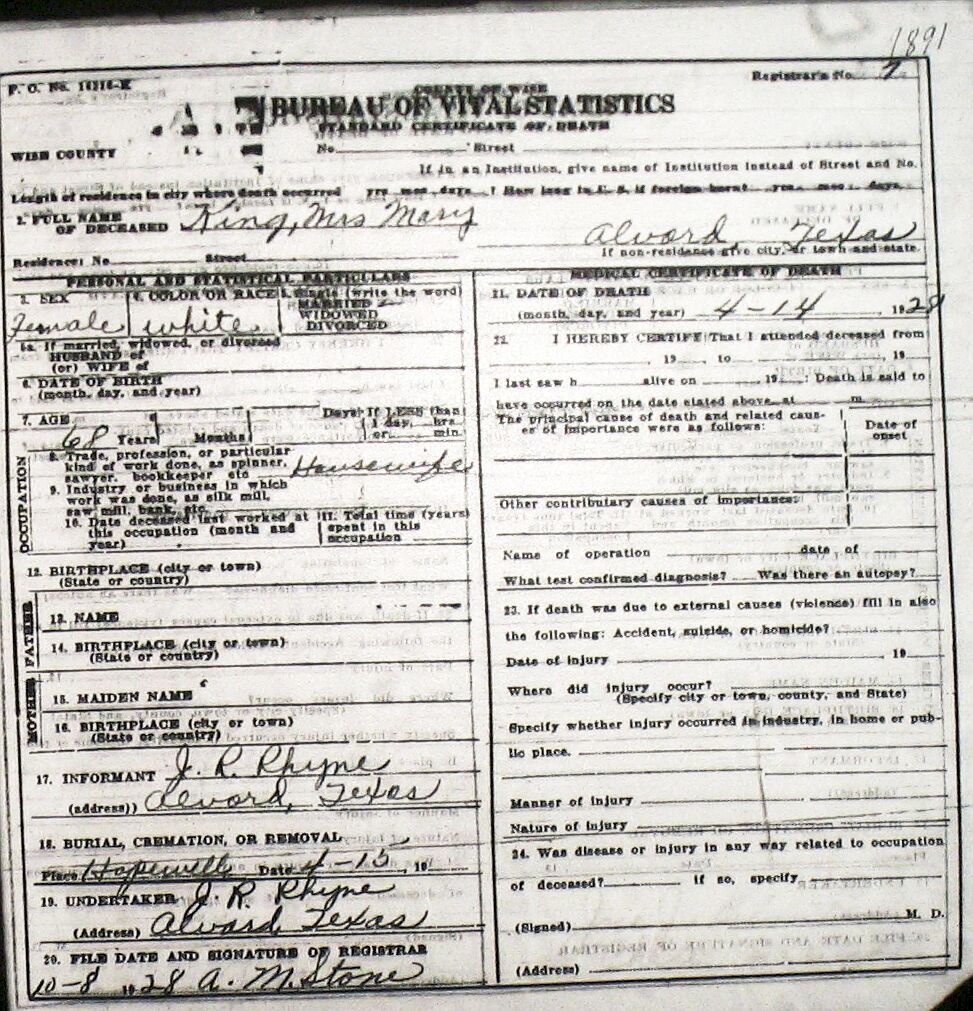 1891
F. O. No. 16316-K
Registrar's No. 7
COUNTY OF WISE
BUREAU OF VITAL STATISTICS
STANDARD CERTIFICATE OF DEATH
WISE COUNTY No. Street
If in an Institution, give name of Institution instead of Street and No.
Length of residence in city where death occurred yrs mos days ? How long in U. S. if foreign born? yrs mos days
2. FULL NAME OF DECEASED King, Mrs Mary
Alvord Texas
Residence: No Street If non-residence give city, or town and state.
PERSONAL AND STATISTICAL PARTICULARS
3. SEX Female
4. COLOR OR RACE white
5. Single (write the word)
MARRIED
WIDOWED
DIVORCED
5a. If married, widowed, or divorced
HUSBAND of
(or) WIFE of
6. DATE OF BIRTH
(month, day, and year)
7. AGE 68 Years Months Days If LESS than
1 day, hrs
or min.
OCCUPATION
8. Trade, profession, or particular
kind of work done, as spinner,
sawyer, bookkeeper etc Housewife
9. Industry or business in which
work was done, as silk mill,
saw mill, bank, etc.
10. Date deceased last worked at
this occupation (month and
year)
11. Total time (years)
spent in this
occupation
12. BIRTHPLACE (city or town)
(State or country)
FATHER
13. NAME
14. BIRTHPLACE (city or town)
(State or country)
MOTHER
15. MAIDEN NAME
16. BIRTHPLACE (city or town)
(State or country)
17. INFORMANT J. R. Rhyne
(address)) Alvord, Texas
18. BURIAL, CREMATION, OR REMOVAL
Place Hopewell Date 4-15, 19
19. UNDERTAKER J. R. Rhyne
(Address) Alvord, Texas
20. FILE DATE AND SIGNATURE OF REGISTRAR
10-8 1928 A. M. Stone
MEDICAL CERTIFICATE OF DEATH
21. DATE OF DEATH
(month, day, and year) 4-14, 1928
22. I HEREBY CERTIFY That I attended deceased from
, 19 , to , 19
I last saw h alive on , 19 ; Death is said to
have occurred on the date stated above, at m.
The principal cause of death and related causes
of importance were as follows:
Date of
onset
Other contributary causes of importance:
Name of operation date of
What test confirmed diagnosis? Was there an autopsy?
23. If death was due to external causes (violence) fill in also
the following: Accident, suicide, or homicide?
Date of injury , 19
Where did injury occur?
(Specify city or town, county, and State)
Specify whether injury occurred in industry, in home or pub-
lic place.
Manner of injury
Nature of injury
24. Was disease or injury in any way related to occupation
of deceased? if so, specify
(Signed) M. D.
(Address)